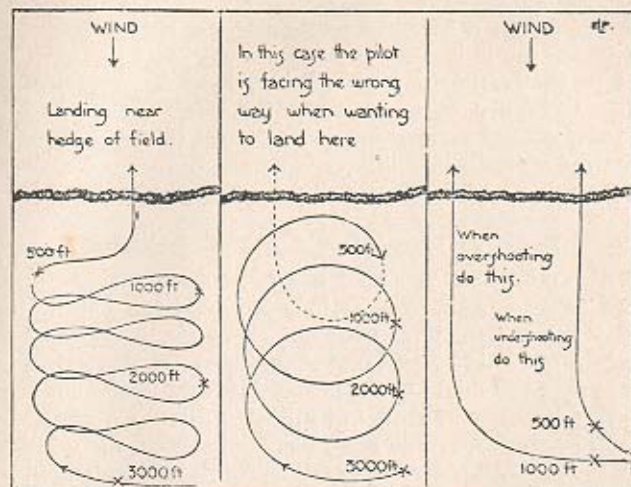 WIND
Landing near
hedge of field.
500 ft
1000 ft
2000 ft
3000 ft
In this case the pilot
is facing the wrong
way when wanting
to land here
500ft
1000ft
2000ft
3000ft
WIND
When
overshooting
do this.
When
undershooting
do this
500 ft
1000 ft